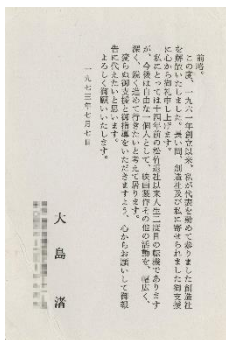 前略。
この度、一九六一年創立以来、私が代表を勤めて参りました創造社
を解散いたしました。長い間、創造社及び私に寄せられました御支援
に心から御礼申し上げます。
私にとっては十四年前の松竹退社以来人生二度目の転機であります
が、今後は自由な一個人として、映画製作その他の活動を、幅広く、
深く、鋭く進めて行きたいと考えて居ります。
変らぬ御支援と御指導をいただきますよう、心からお願いして御報
告に代えたいと思います。
よろしく御願いいたします。
一九七三年七月七日
大島 渚